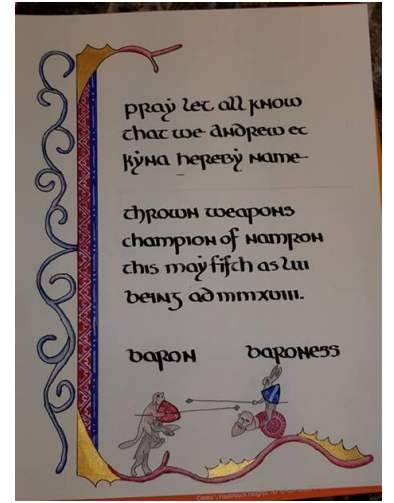 pray let all know
that we andrew et
kyna hereby name
thrown weapons
champion of namron
this may fifth as liii
being ad mmxviii.
baron baroness